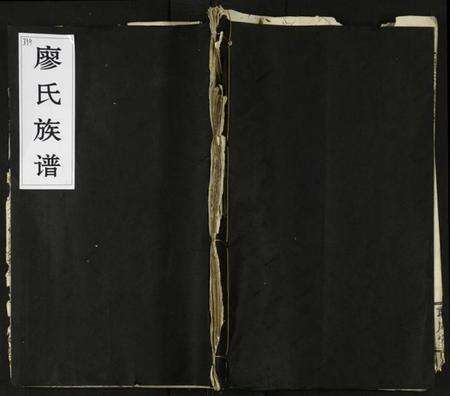 廖氏族谱